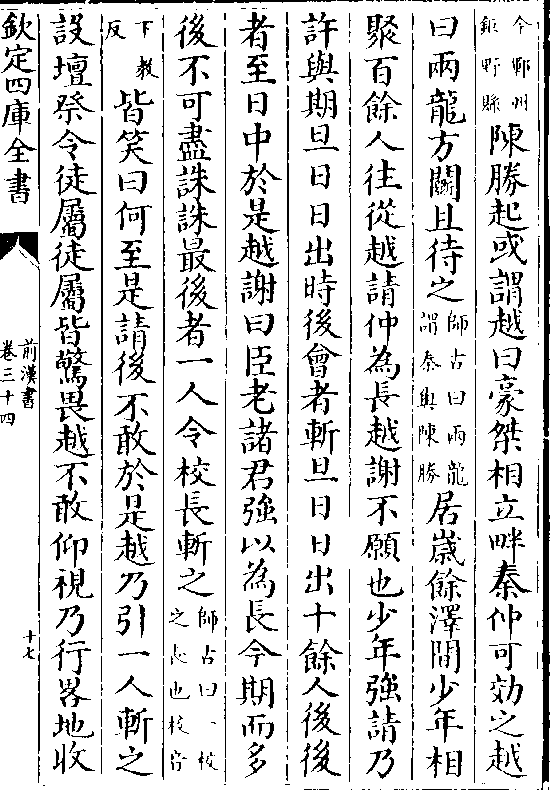 今鄆州鉅野縣陳勝起或謂越曰豪桀相立畔秦仲可効之越
曰兩龍方鬬且待之師古曰兩龍謂秦與陳勝居歲餘澤間少年相
聚百餘人往從越請仲為長越謝不願也少年強請乃
許與期旦日日出時後會者斬旦日日出十餘人後後
者至日中於是越謝曰臣老諸君強以為長今期而多
後不可盡誅誅最後者一人令校長斬之師古曰一校之長也校音
下教反皆笑曰何至是請後不敢於是越乃引一人斬之
設壇祭令徒屬徒屬皆驚畏越不敢仰視乃行畧地收
欽定四庫全書
前漢書
卷三十四
十七